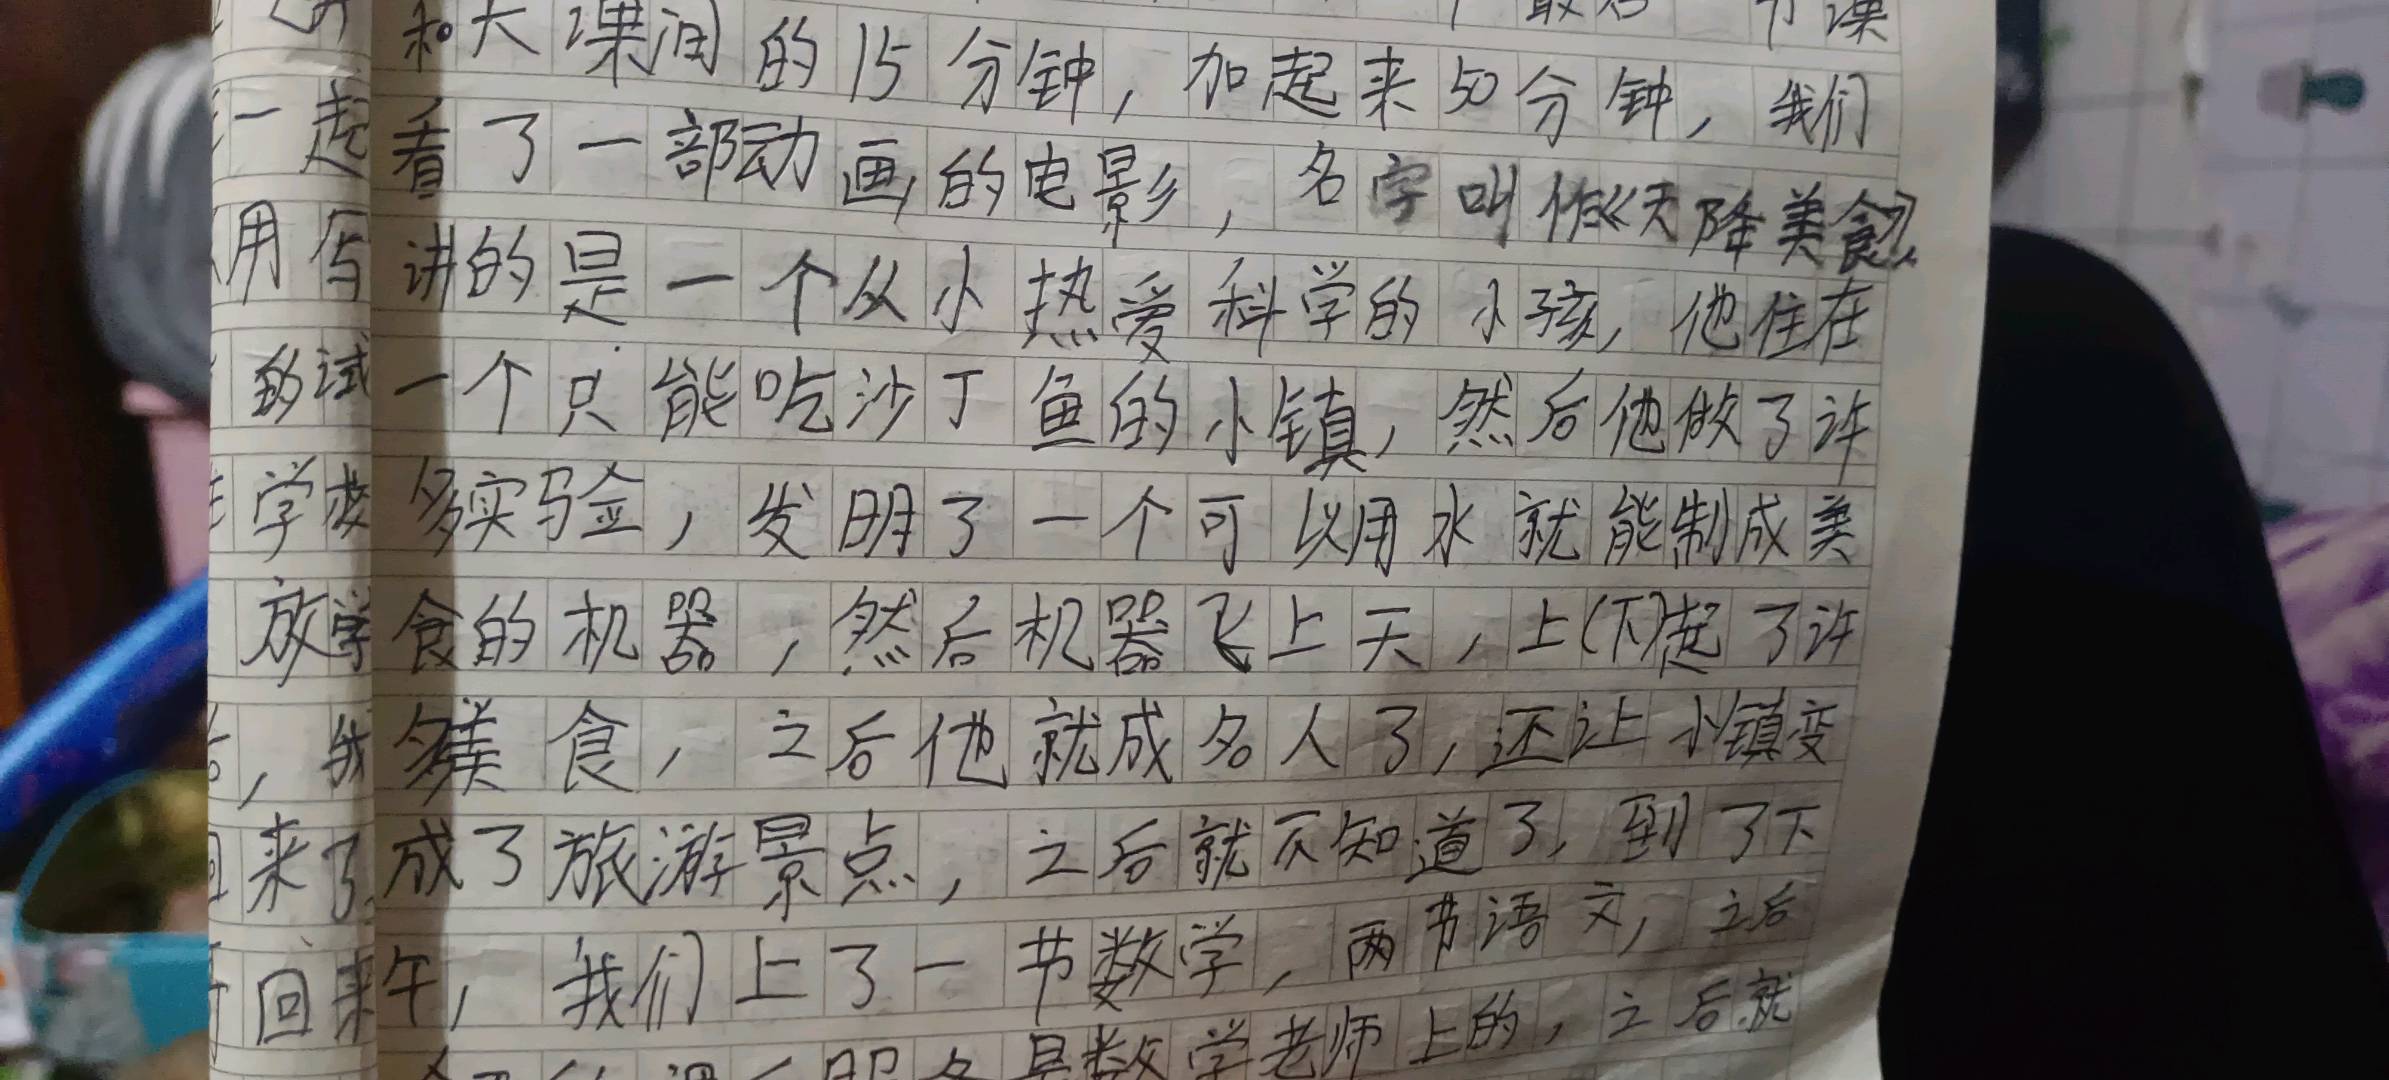 最后一节课
和大课间的15分钟，加起来50分钟，我们
看了一部动画的电影，名字叫作《天降美食》，
讲的是一个从小热爱科学的小孩，他住在
一个只能吃沙丁鱼的小镇，然后他做了许
多实验，发明了一个可以用水就能制成美
食的机器，然后机器飞上天，上(下)起了许
多美食，之后他就成名人了，还让小镇变
成了旅游景点，之后就不知道了，到了下
午，我们上了一节数学，两节语文，之后
是数学老师上的，之后就
一起
用写
的试
学校
放学
，我
来了
回来